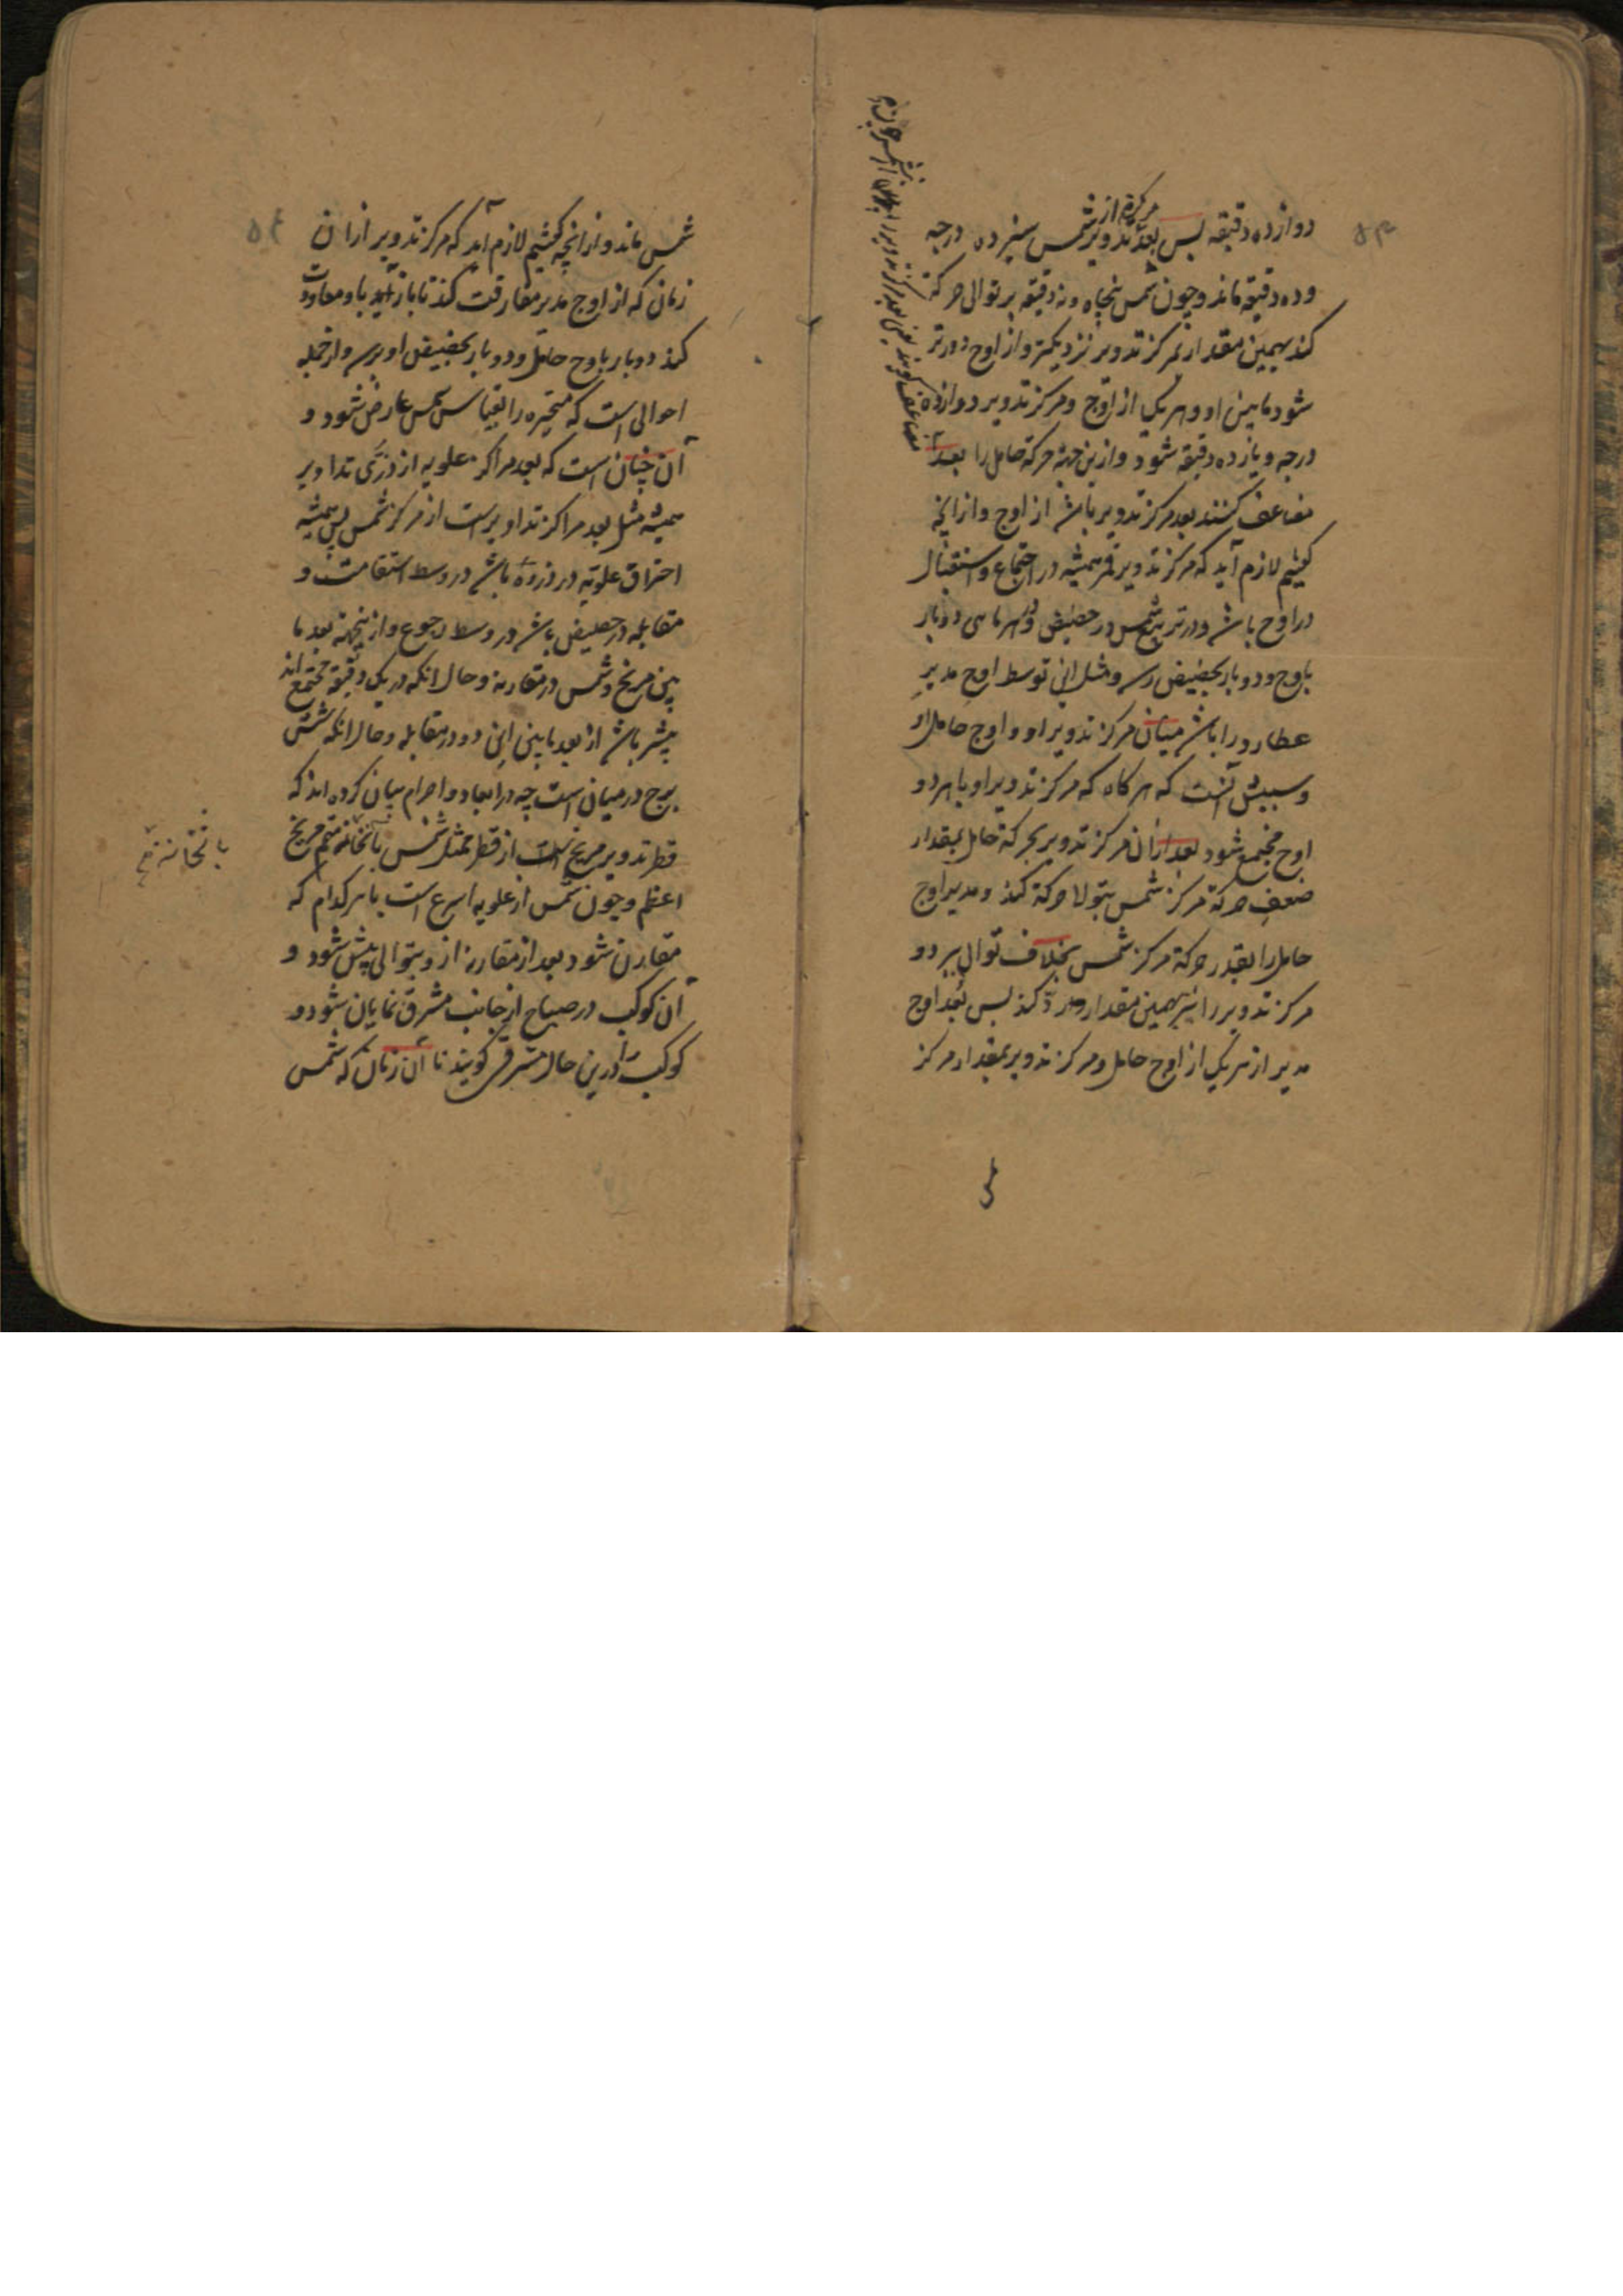 ۵۳
دوازده دقیقه پس بعد مرکز تدویر از شمس سیزده درجه
و ده دقیقه ماند و چون شمس پنجاه و نه دقیقه بر توالی حرکة
کند بهمین مقدار بمرکز تدویر نزدیکتر و از اوج دورتر
شود مابین او و هر یکی از اوج و مرکز تدویر دوازده
درجه و یازده دقیقه شود و ازین جهة حرکة حامل را بعد
مضاعف گفتند بعد مرکز تدویر باشد از اوج و ازانچه
گفتیم لازم آید که مرکز تدویر قمر همیشه در اجتماع و استقبال
در اوج باشد و در تربیع شمس در حضیض و در هر ماهی دو بار
باوج و دو بار بحضیض رسد و مثل این توسط اوج مدیر
عطارد را باشد میان مرکز تدویر او و اوج حامل او
و سببش آنست که هر کاه که مرکز تدویر او با هر دو
اوج مجتمع شود بعد ازان مرکز تدویر بحرکة حامل بمقدار
ضعف حرکة مرکز شمس بتوالی حرکة کند و مدیر اوج
حامل را بقدر حرکة مرکز شمس بخلاف توالی ببرد و
مرکز تدویر را نیز بهمین مقدار رد کند پس بعد اوج
مدیر از هر یک از اوج حامل و مرکز تدویر بمقدار مرکز
شمس ماند و ازانچه گفتیم لازم آید که مرکز تدویر ازان
زمان که از اوج مدیر مفارقت کند تا باز آید با و معاودت
کند دو بار باوج حامل و دو بار بحضیض او برسد و از جمله
احوالی است که متحیره را بقیاس شمس عارض شود و
آن چنان است که بعد مراکز علویه از ذری تداویر
همیشه مثل بعد مراکز تداویر است از مرکز شمس پس همیشه
احتراق علویه در ذروه باشد در وسط استقامت و
مقابله در حضیض باشد در وسط رجوع و ازینجهة بعد ما
بین مریخ و شمس در مقارنه و حال انکه در یک دقیقه مجتمع اند
بیشتر باشد از بعد مابین این دو در مقابله و حال انکه شش
برج در میان است چه در ابعاد و اجرام بیان کرده اند که
قطر تدویر مریخ است از قطر ممثل شمس با ثخانة متمم مریخ
اعظم و چون شمس از علویه اسرع است با هر کدام که
مقارن شود بعد از مقارنه ازو بتوالی پیش شود و
آن کوکب در صباح از جانب مشرق نمایان شود و
کوکب را درین حال مشرقی کویند تا آن زمان که شمس